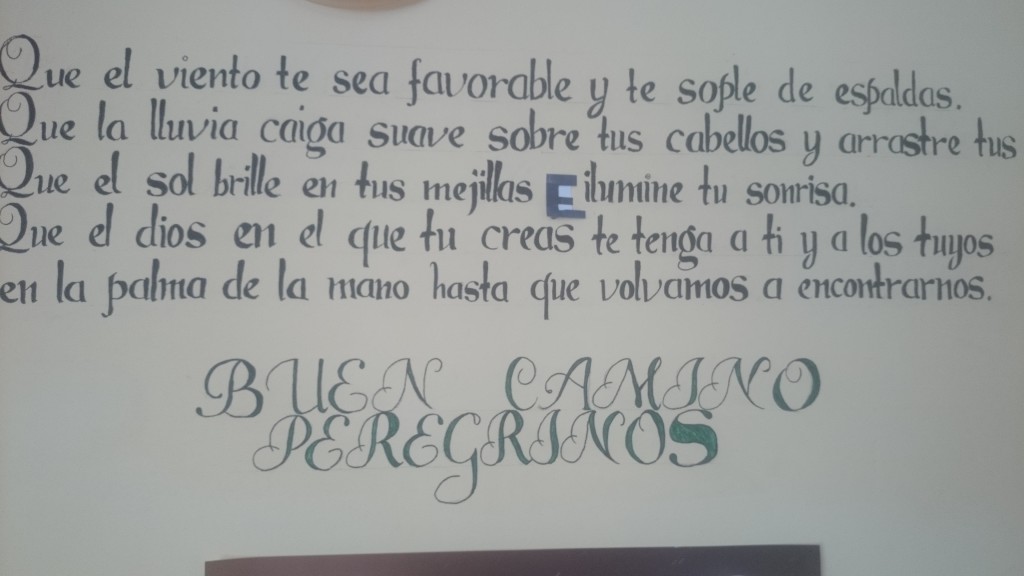 Que el viento te sea favorable y te sople de espaldas.
Que la lluvia caiga suave sobre tus cabellos y arrastre tus
Que el sol brille en tus mejillas E ilumine tu sonrisa.
Que el dios en el que tu creas te tenga a ti y a los tuyos
en la palma de la mano hasta que volvamos a encontrarnos.
BUEN CAMINO
PEREGRINOS